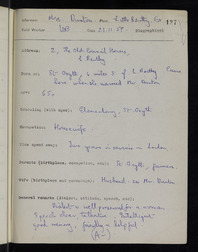 Mrs Denton
Little Bentley, Ex
Field Worker
(Biographical)
Address: 2, The Old Council Houses,
L. Bentley
Born at: St. Osyth, 6 miles S of L. Bentley
here when she married Mr. Denton
Age: 65
Schooling (when quit): Elementary, St. Osyth
Occupation: Housewife
years in service in London.
Parents (birthplace, occupation, etc): St. Osyth, farmers.
Wife (birthplace and persistence): Husband - as Mr. Denton
General remarks (dialect, attitude, speech, etc)
Dialect is well preserved for a woman
Speech clear. Talkative. Intelligent
good memory, friendly & helpful
(A-)